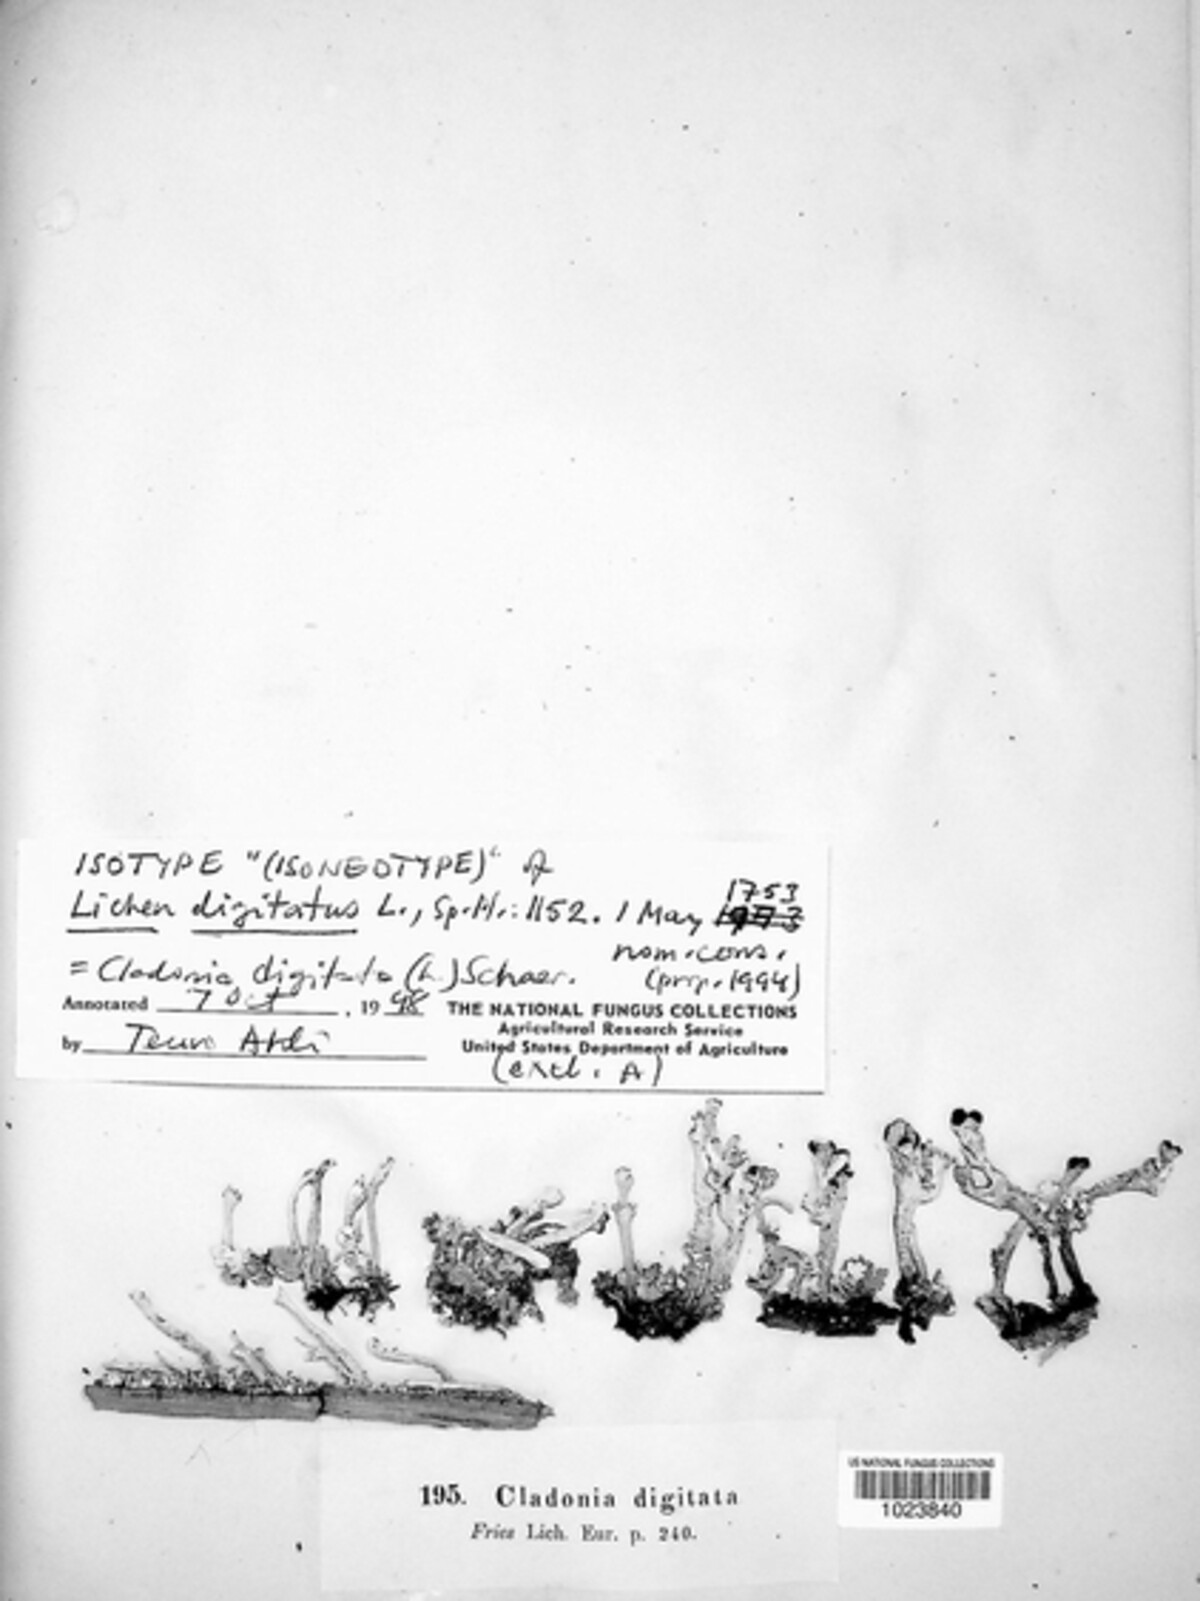 ISOTYPE "(ISONEOTYPE)" of
Lichen digitatus L., Sp. Pl.: 1152. 1 May 1753
nom. cons.
= Cladonia digitata (L.) Schaer. (prop. 1994)
Annotated 7 Oct, 1998 THE NATIONAL FUNGUS COLLECTIONS
Agricultural Research Service
by Teuvo Ahti United States Department of Agriculture
(excl. A)
195. Cladonia digitata
Fries Lich. Eur. p. 240.
US NATIONAL FUNGUS COLLECTIONS
1023840